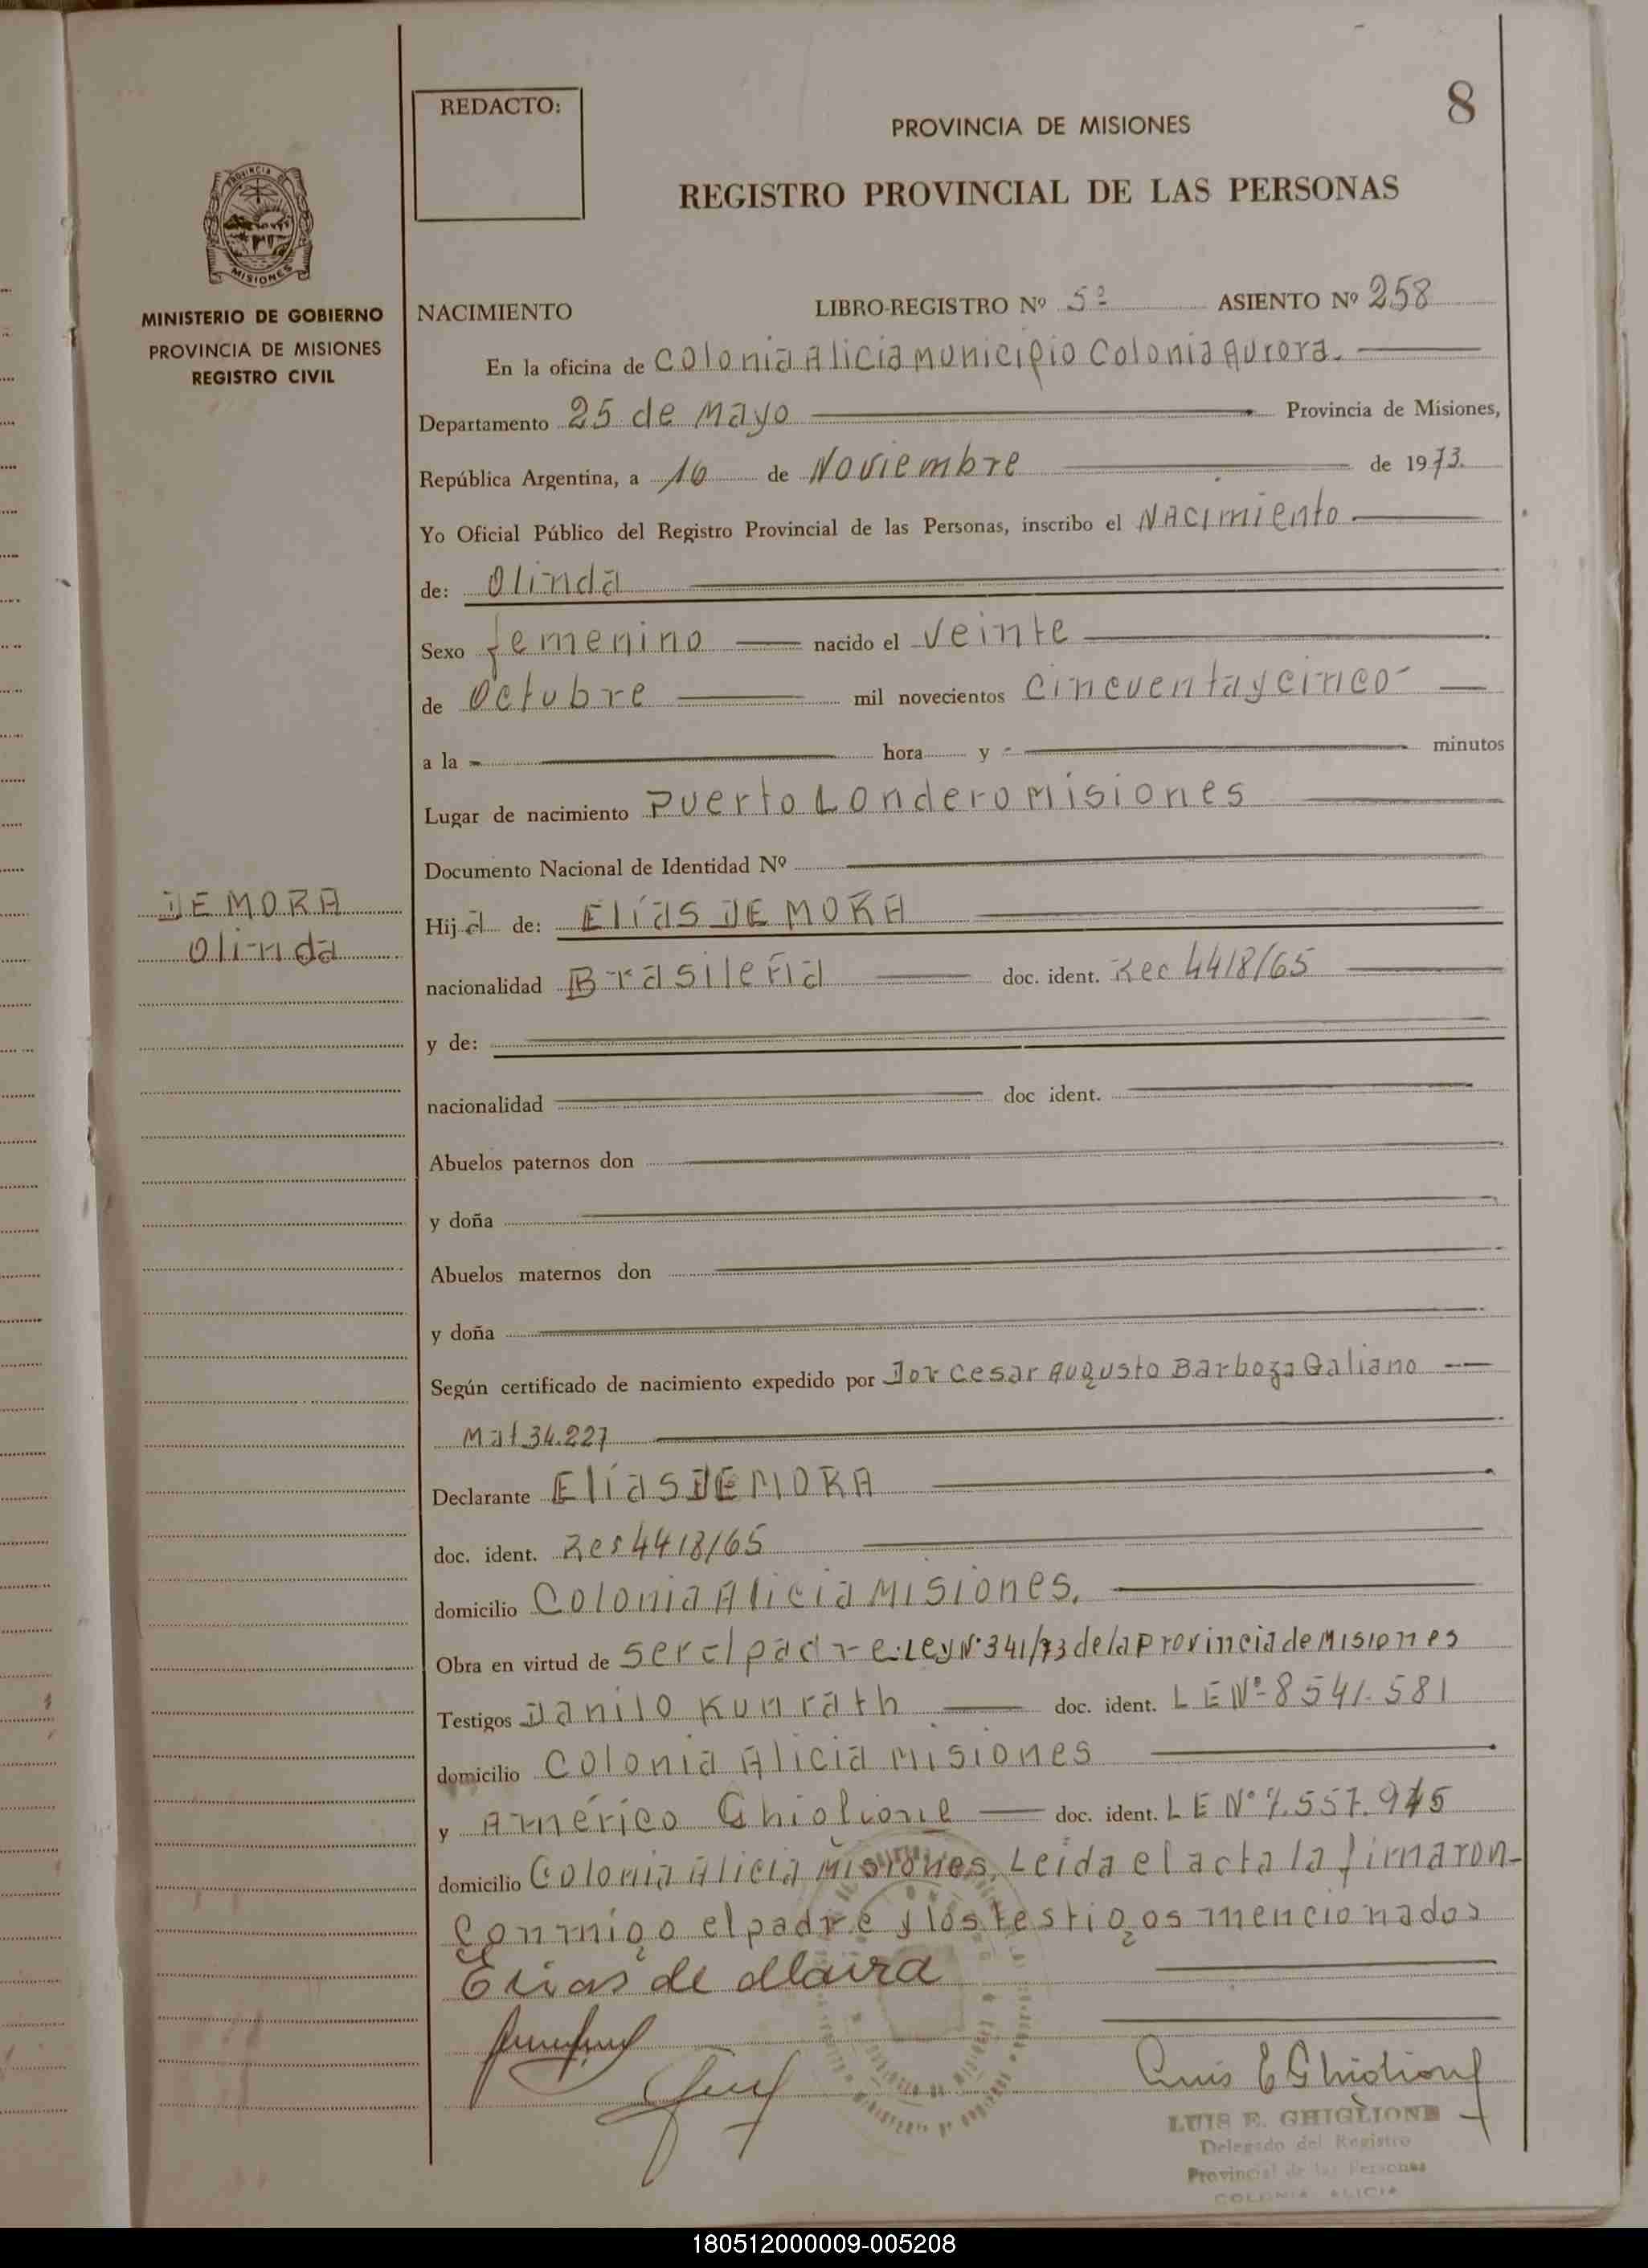 8
REDACTO:
PROVINCIA DE MISIONES
REGISTRO PROVINCIAL DE LAS PERSONAS
PROVINCIA DE
MISIONES
MINISTERIO DE GOBIERNO
PROVINCIA DE MISIONES
REGISTRO CIVIL
NACIMIENTO LIBRO-REGISTRO Nº 5º ASIENTO Nº 258
En la oficina de Colonia Alicia Municipio Colonia Aurora.
Departamento 25 de Mayo Provincia de Misiones,
República Argentina, a 16 de Noviembre de 1973.
Yo Oficial Público del Registro Provincial de las Personas, inscribo el Nacimiento
de: Olinda
Sexo femenino nacido el veinte
de Octubre mil novecientos cincuenta y cinco
a la hora y minutos
Lugar de nacimiento Puerto Londero Misiones
Documento Nacional de Identidad Nº
DE MORA
Olinda
Hija de: Elías DE MORA
nacionalidad Brasileña doc. ident. Rec 4418/65
y de:
nacionalidad doc ident.
Abuelos paternos don
y doña
Abuelos maternos don
y doña
Según certificado de nacimiento expedido por Dor Cesar Augusto Barboza Galiano
Mat 34.227
Declarante Elías DE MORA
doc. ident. Rec 4418/65
domicilio Colonia Alicia Misiones.
Obra en virtud de ser el padre. Ley Nº 341/73 de la Provincia de Misiones
Testigos Danilo Kunrath doc. ident. L E Nº 8541.581
domicilio Colonia Alicia Misiones
y Américo Ghiolione doc. ident. L E Nº 7.557.945
domicilio Colonia Alicia Misiones. Leída el acta la firmaron
Conmigo el padre y los testigos mencionados
Elias de Maira
Luis E Ghiglione
LUIS E. GHIGLIONE
Delegado del Registro
Provincial de las Personas
COLONIA ALICIA
180512000009-005208